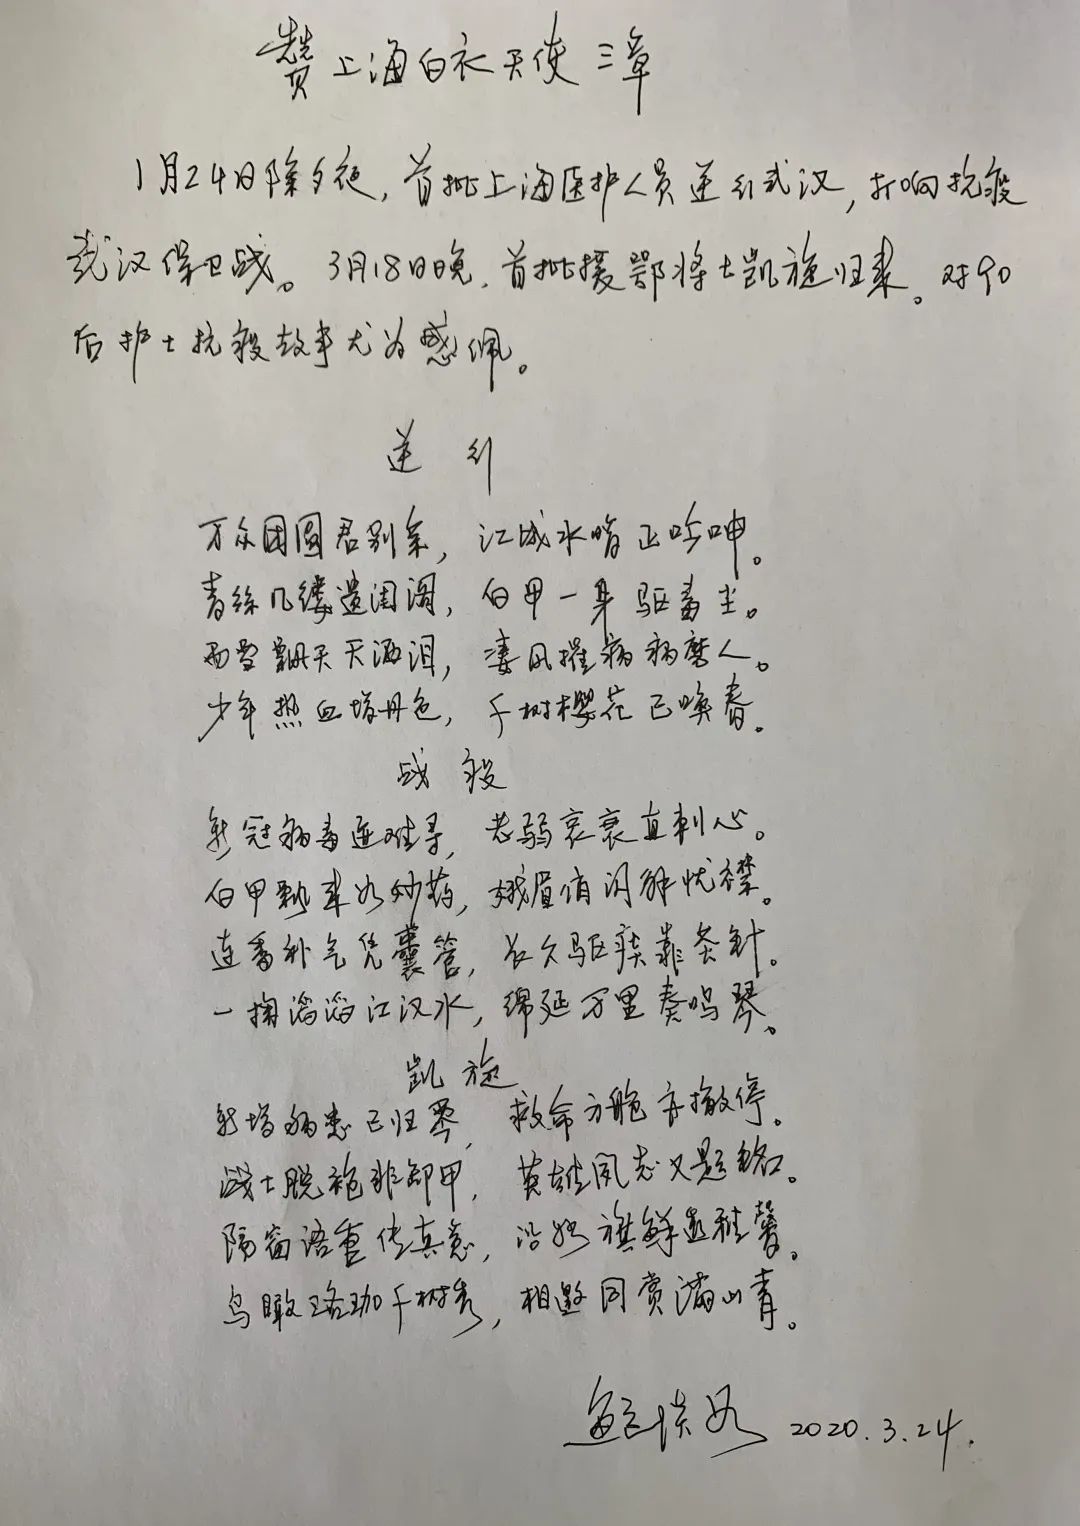 赞上海白衣天使三章
1月24日除夕夜,首批上海医护人员逆行武汉,打响抗疫
武汉保卫战。3月18日晚,首批援鄂将士凯旋归来。对90
后护士抗疫故事尤为感佩。
逆行
万众团圆君别亲,江城水暗正吟呻。
青丝几缕遗闺阁,白甲一身驱毒尘。
雨雪飘天天洒泪,凄风摧病病磨人。
少年热血增丹色,千树樱花已唤春。
战疫
新冠病毒迹难寻,老弱哀衰直刺心。
白甲飘来如妙药,娥眉俏闪解忧襟。
连番补气凭囊管,长久驱疾靠条针。
一掬滔滔江汉水,绵延万里奏鸣琴。
凯旋
新增病患已归零,救命方舱亦撤停。
战士脱袍非卸甲,英雄夙志又题铭。
隔窗语重传真意,沿路旗鲜送雅馨。
鸟瞰珞珈千树秀,相邀同赏满山青。
2020.3.24.